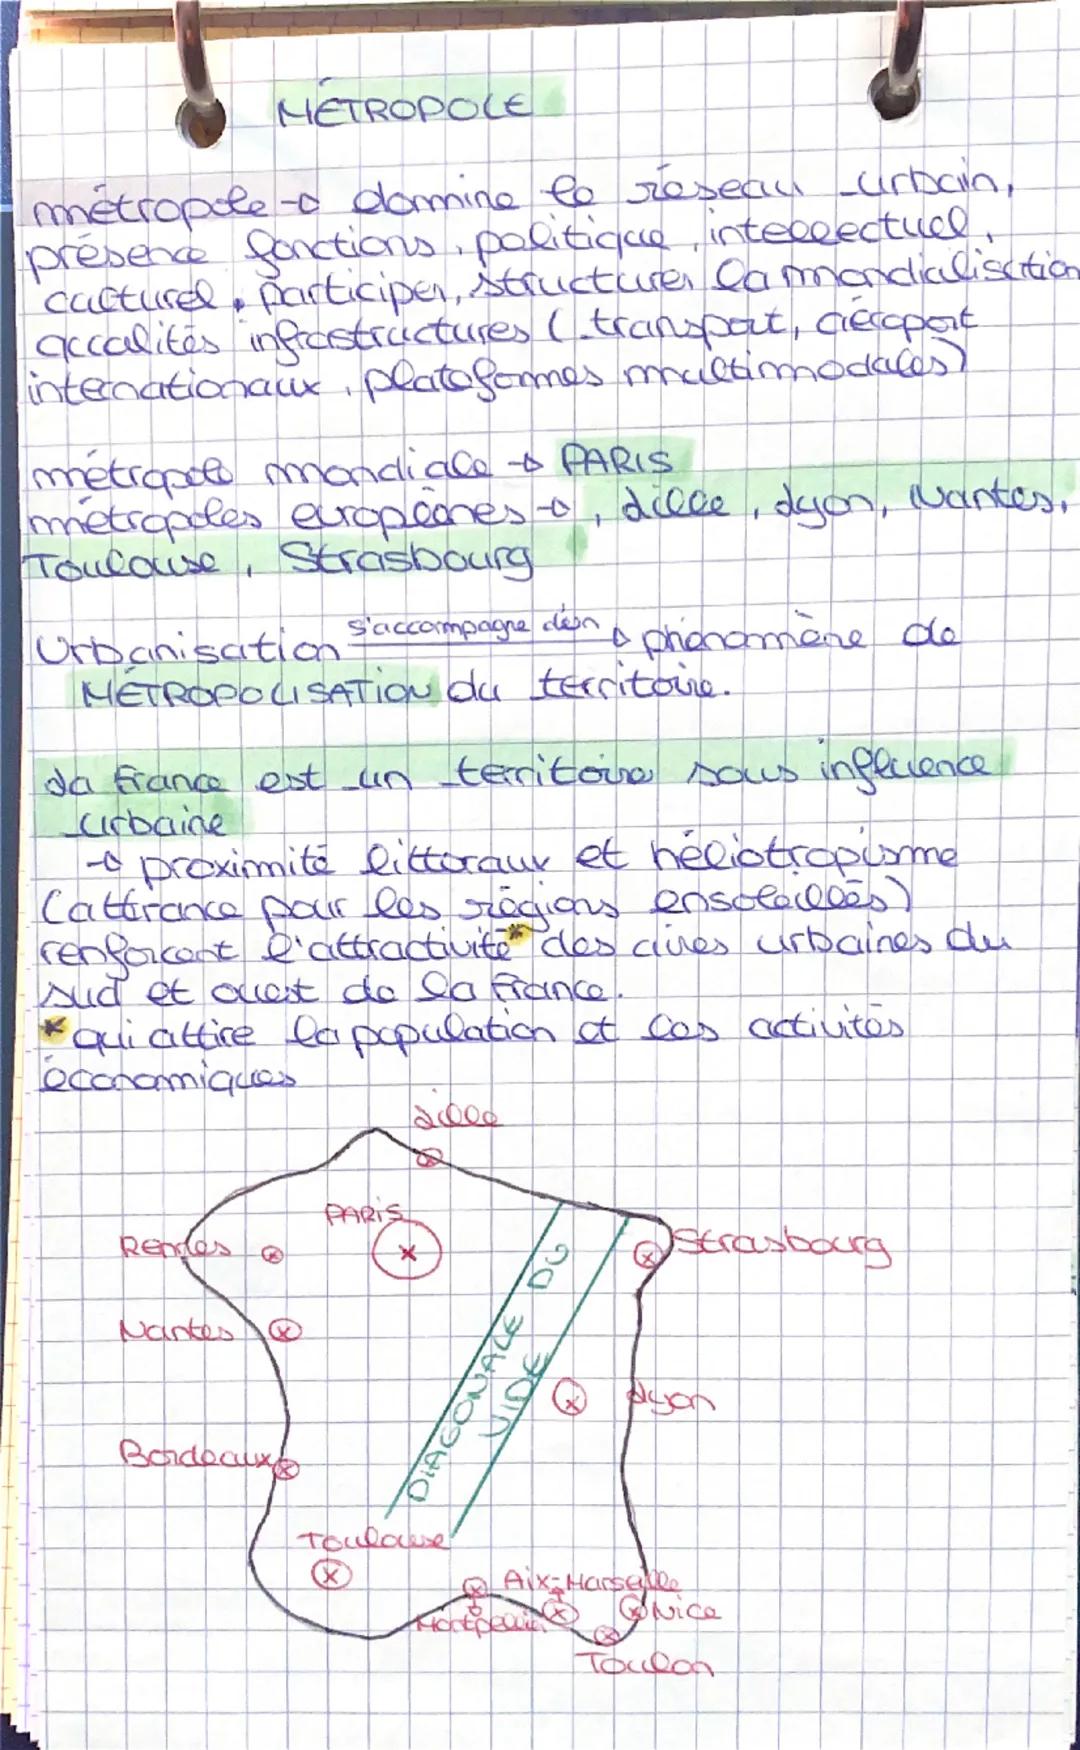 MÉTROPOLE
métropole → domine le réseau urbain,
présence fonctions, politique, intellectuel,
culturel, participer, structurer la mondialisation
accalités infrastructures (transport, aéroport
internationaux, plateformes multimodales)
métropole mondiale → PARIS
métropoles européenes →, Lille, Lyon, Nantes,
Toulouse, Strasbourg
Urbanisation s'accompagne d'un → phénomène de
MÉTROPOLISATION du territoire.
La France est un territoire sous influence
urbaine
→ proximité littoraux et héliotropisme
(attirance pour les régions ensoleillés)
renforcent l'attractivité* des aires urbaines du
sud et ouest de la France.
* qui attire la population et les activités
économiques
Lille
PARIS
Rennes
Strasbourg
Nantes
DIAGONALE DU
VIDE
Lyon
Bordeaux
Toulouse
Aix-Marseille
Montpellier
Nice
Toulon